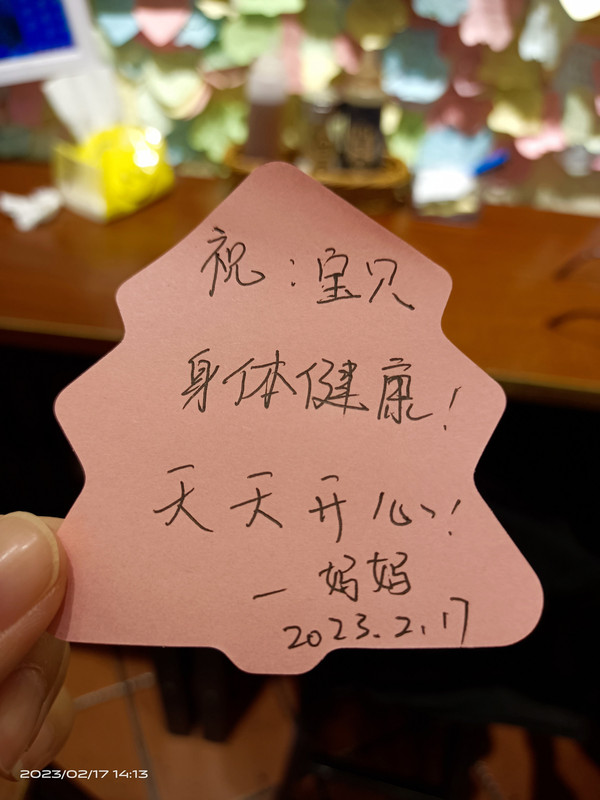 祝:宝贝
身体健康!
天天开心!
— 妈妈
2023.2.17
2023/02/17 14:13